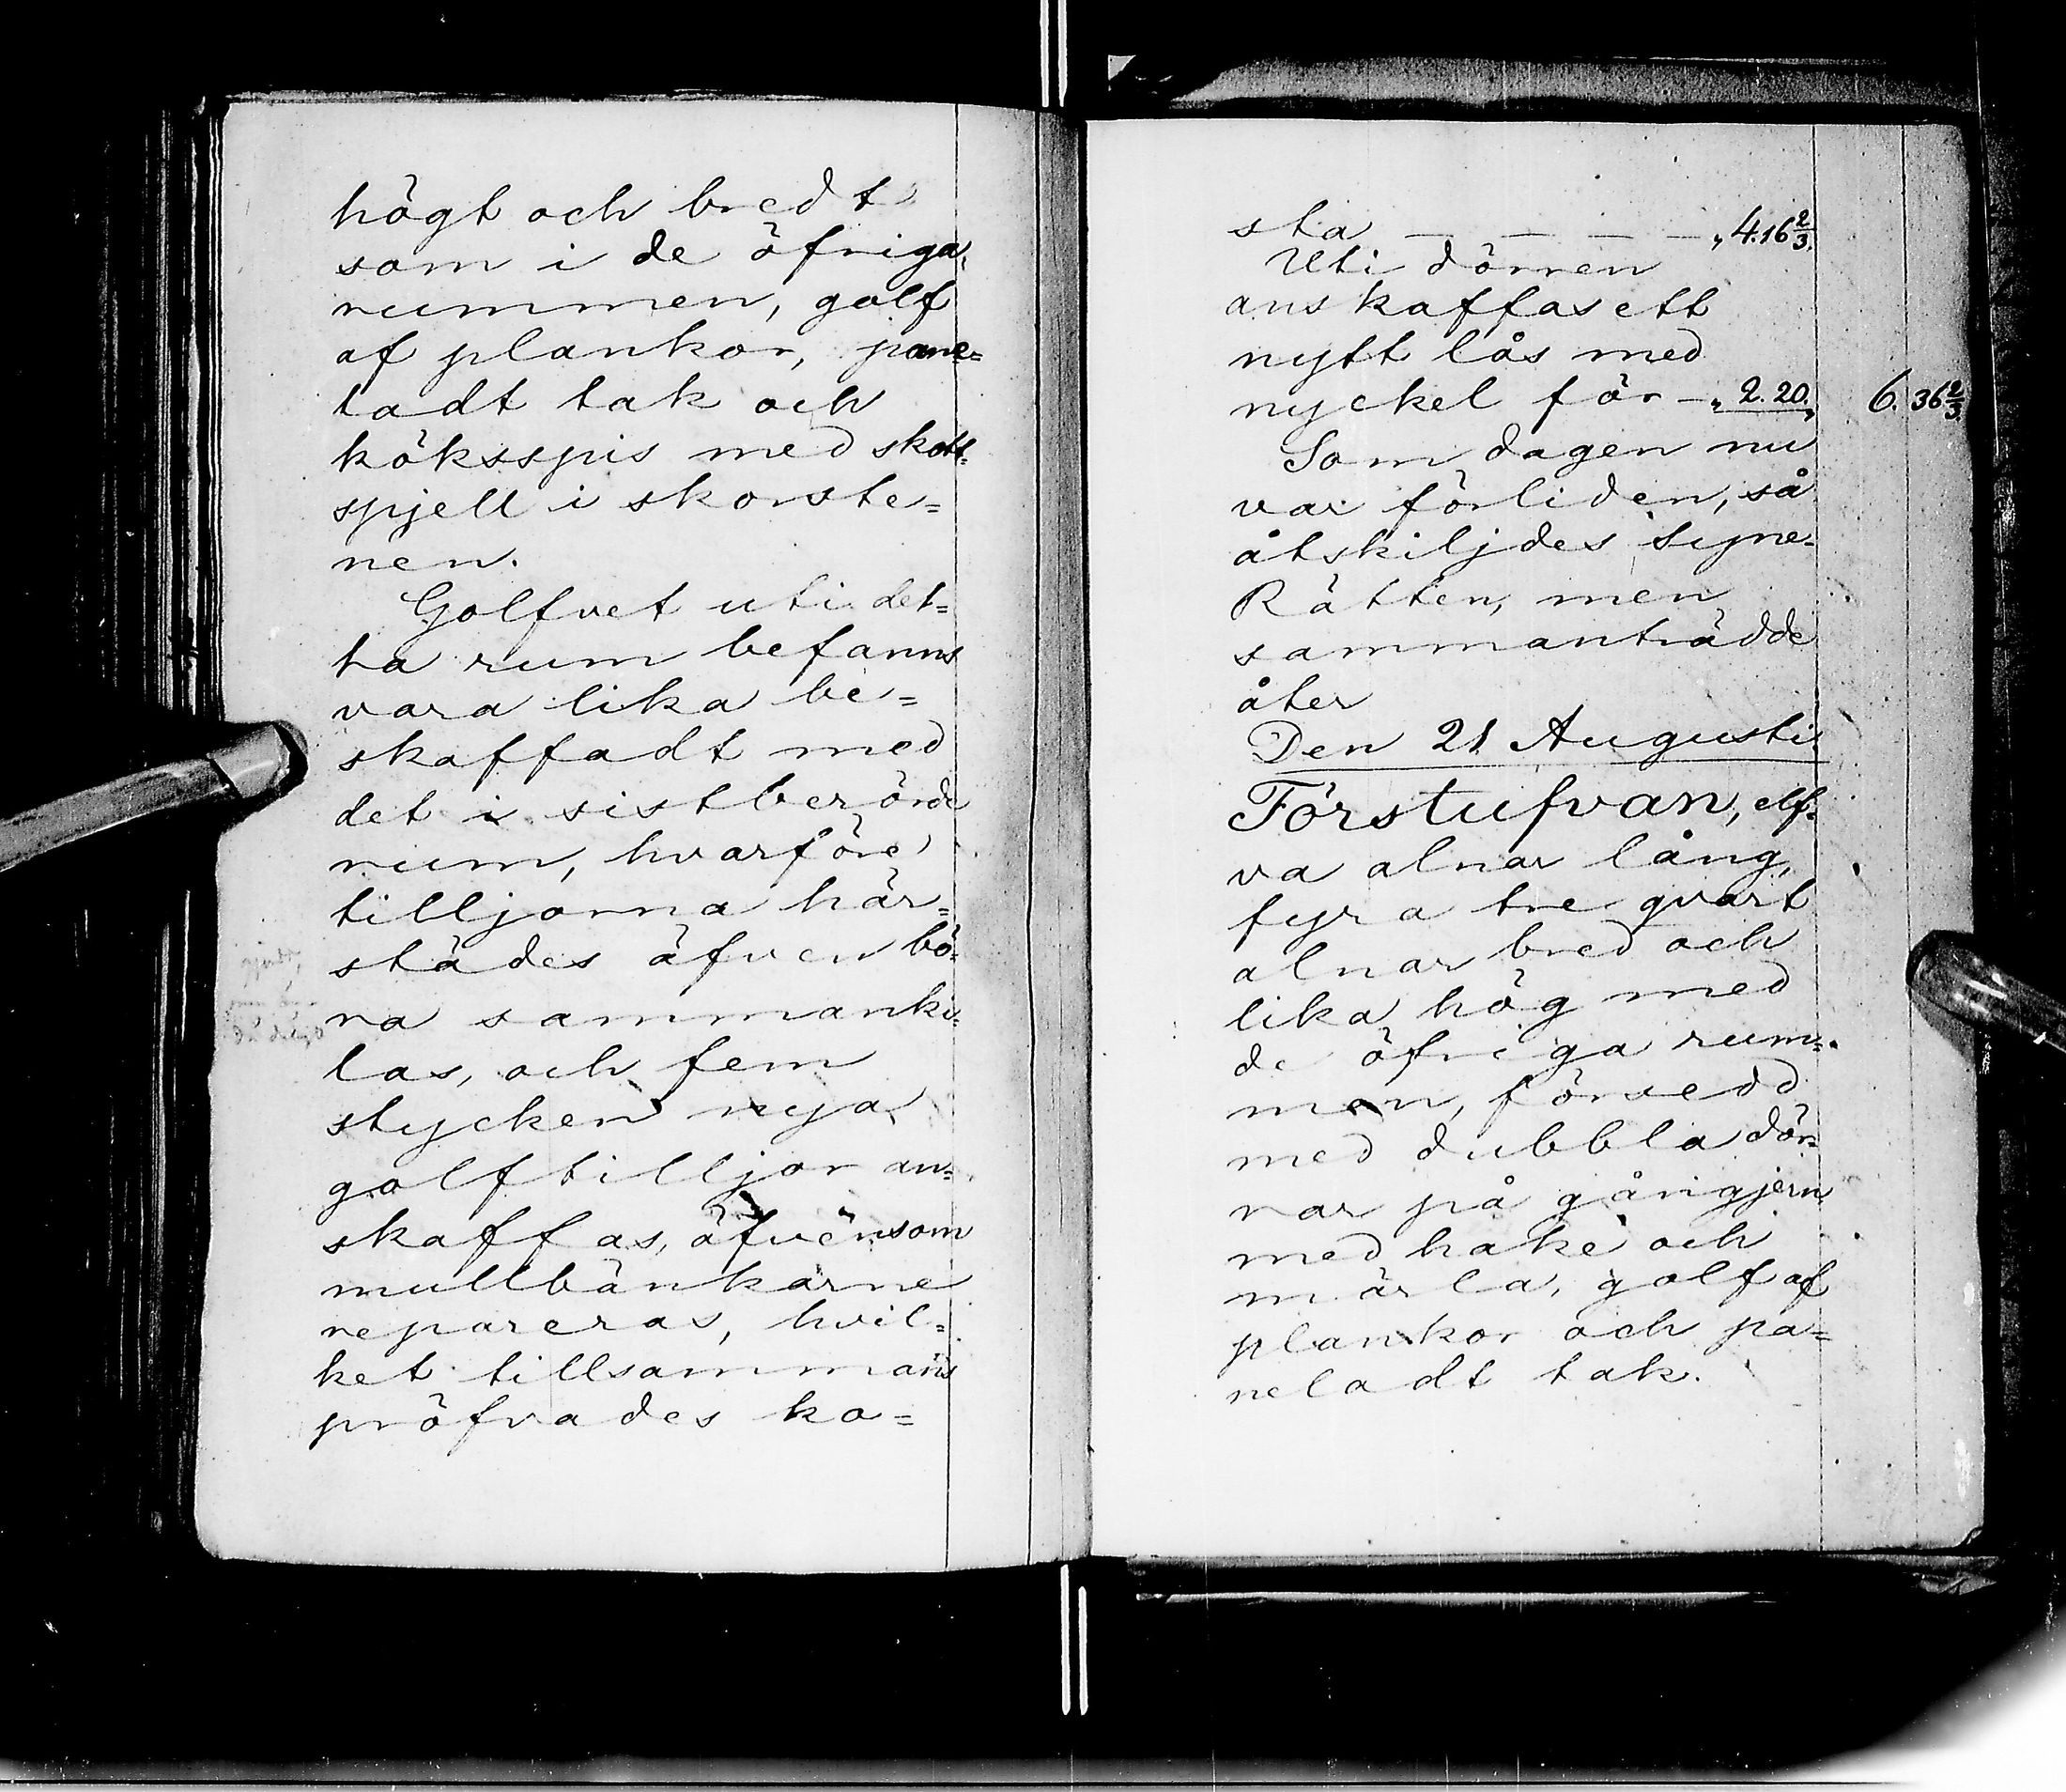 högt och bredt
som i de öfriga
rummen, golf
af plankor, pane-
ladt tak och
köksspis med skott-
spjell i skorste=
nen.
Golfvet uti det=
ta rum befanns
vara lika be=
skaffadt med
det i sistberörde
rum, hvarföre
tilljorna här=
städes äfven bö-
ra sammanki-
las, och fem
stycken nya
golftilljor an=
skaffas, äfvensom
mullbänkarne
repareras, hvil=
ket tillsammans
pröfvades ko=
sta — — — — „ 4.16 2/3.
Uti dörren
anskaffas ett
nytt lås med
nyckel för — „ 2.20. „ 6. 36 2/3
Som dagen nu
var förliden, så
åtskiljdes Syne-
Rätten, men
sammanträdde
åter
Den 21 Augusti.
Förstufvan, elf-
va alnar lång,
fyra tre qvart
alnar bred och
lika hög med
de öfriga rum=
men, försedd
med dubbla dör-
rar på gångjern
med hake och
märla, golf af
plankor och pa=
neladt tak.